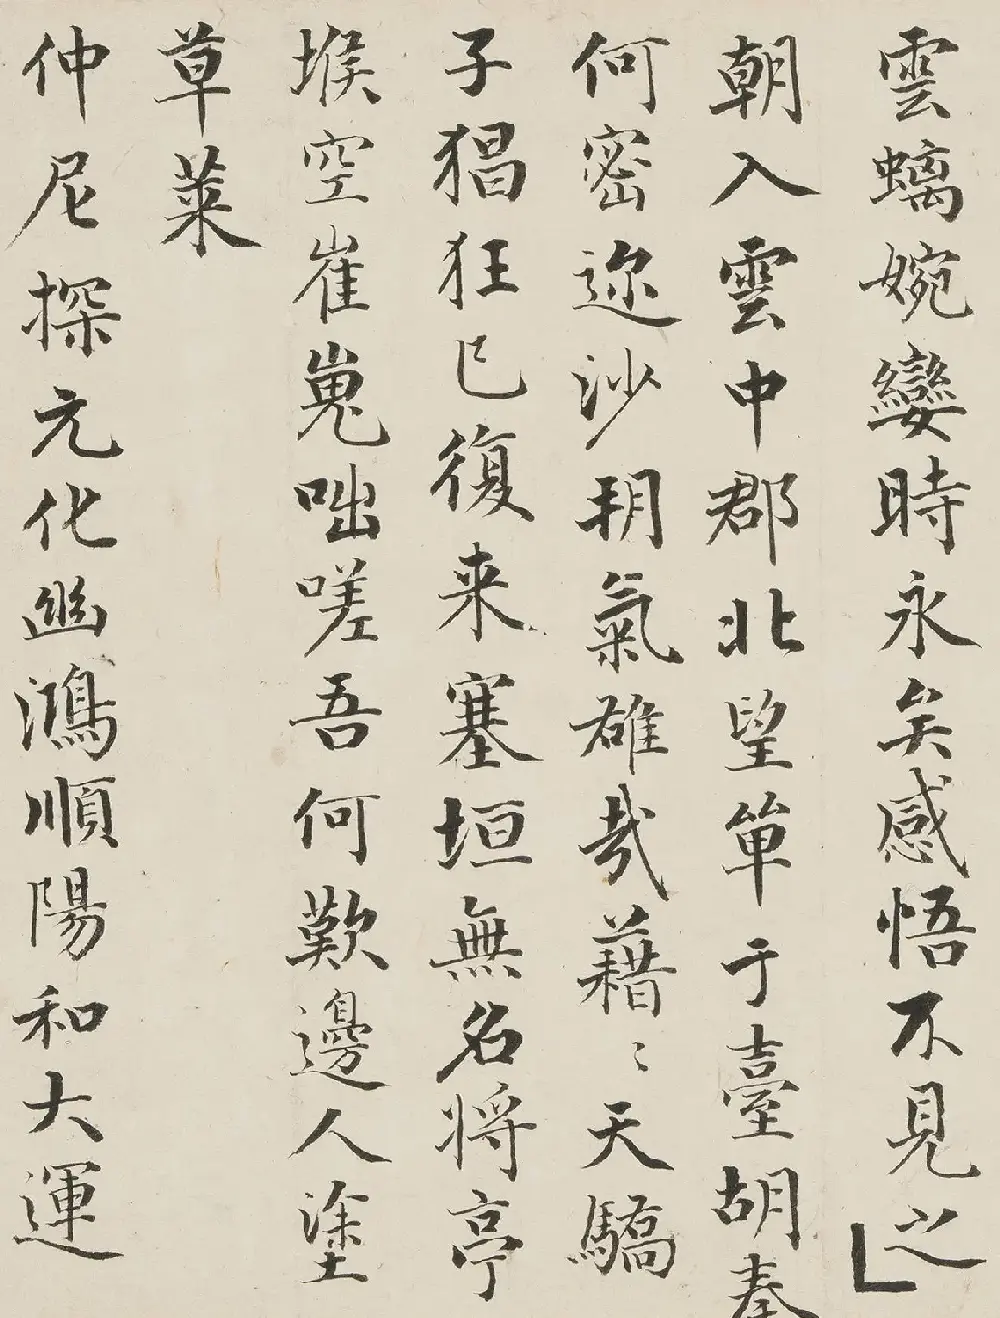 雲螭婉孌時永矣感悟不見之
朝入雲中郡北望單于臺胡秦
何密迩沙朔氣雄哉藉〻天驕
子猖狂已復来塞垣無名将亭
堠空崔嵬咄嗟吾何歎邊人塗
草萊
仲尼探元化幽鴻順陽和大運